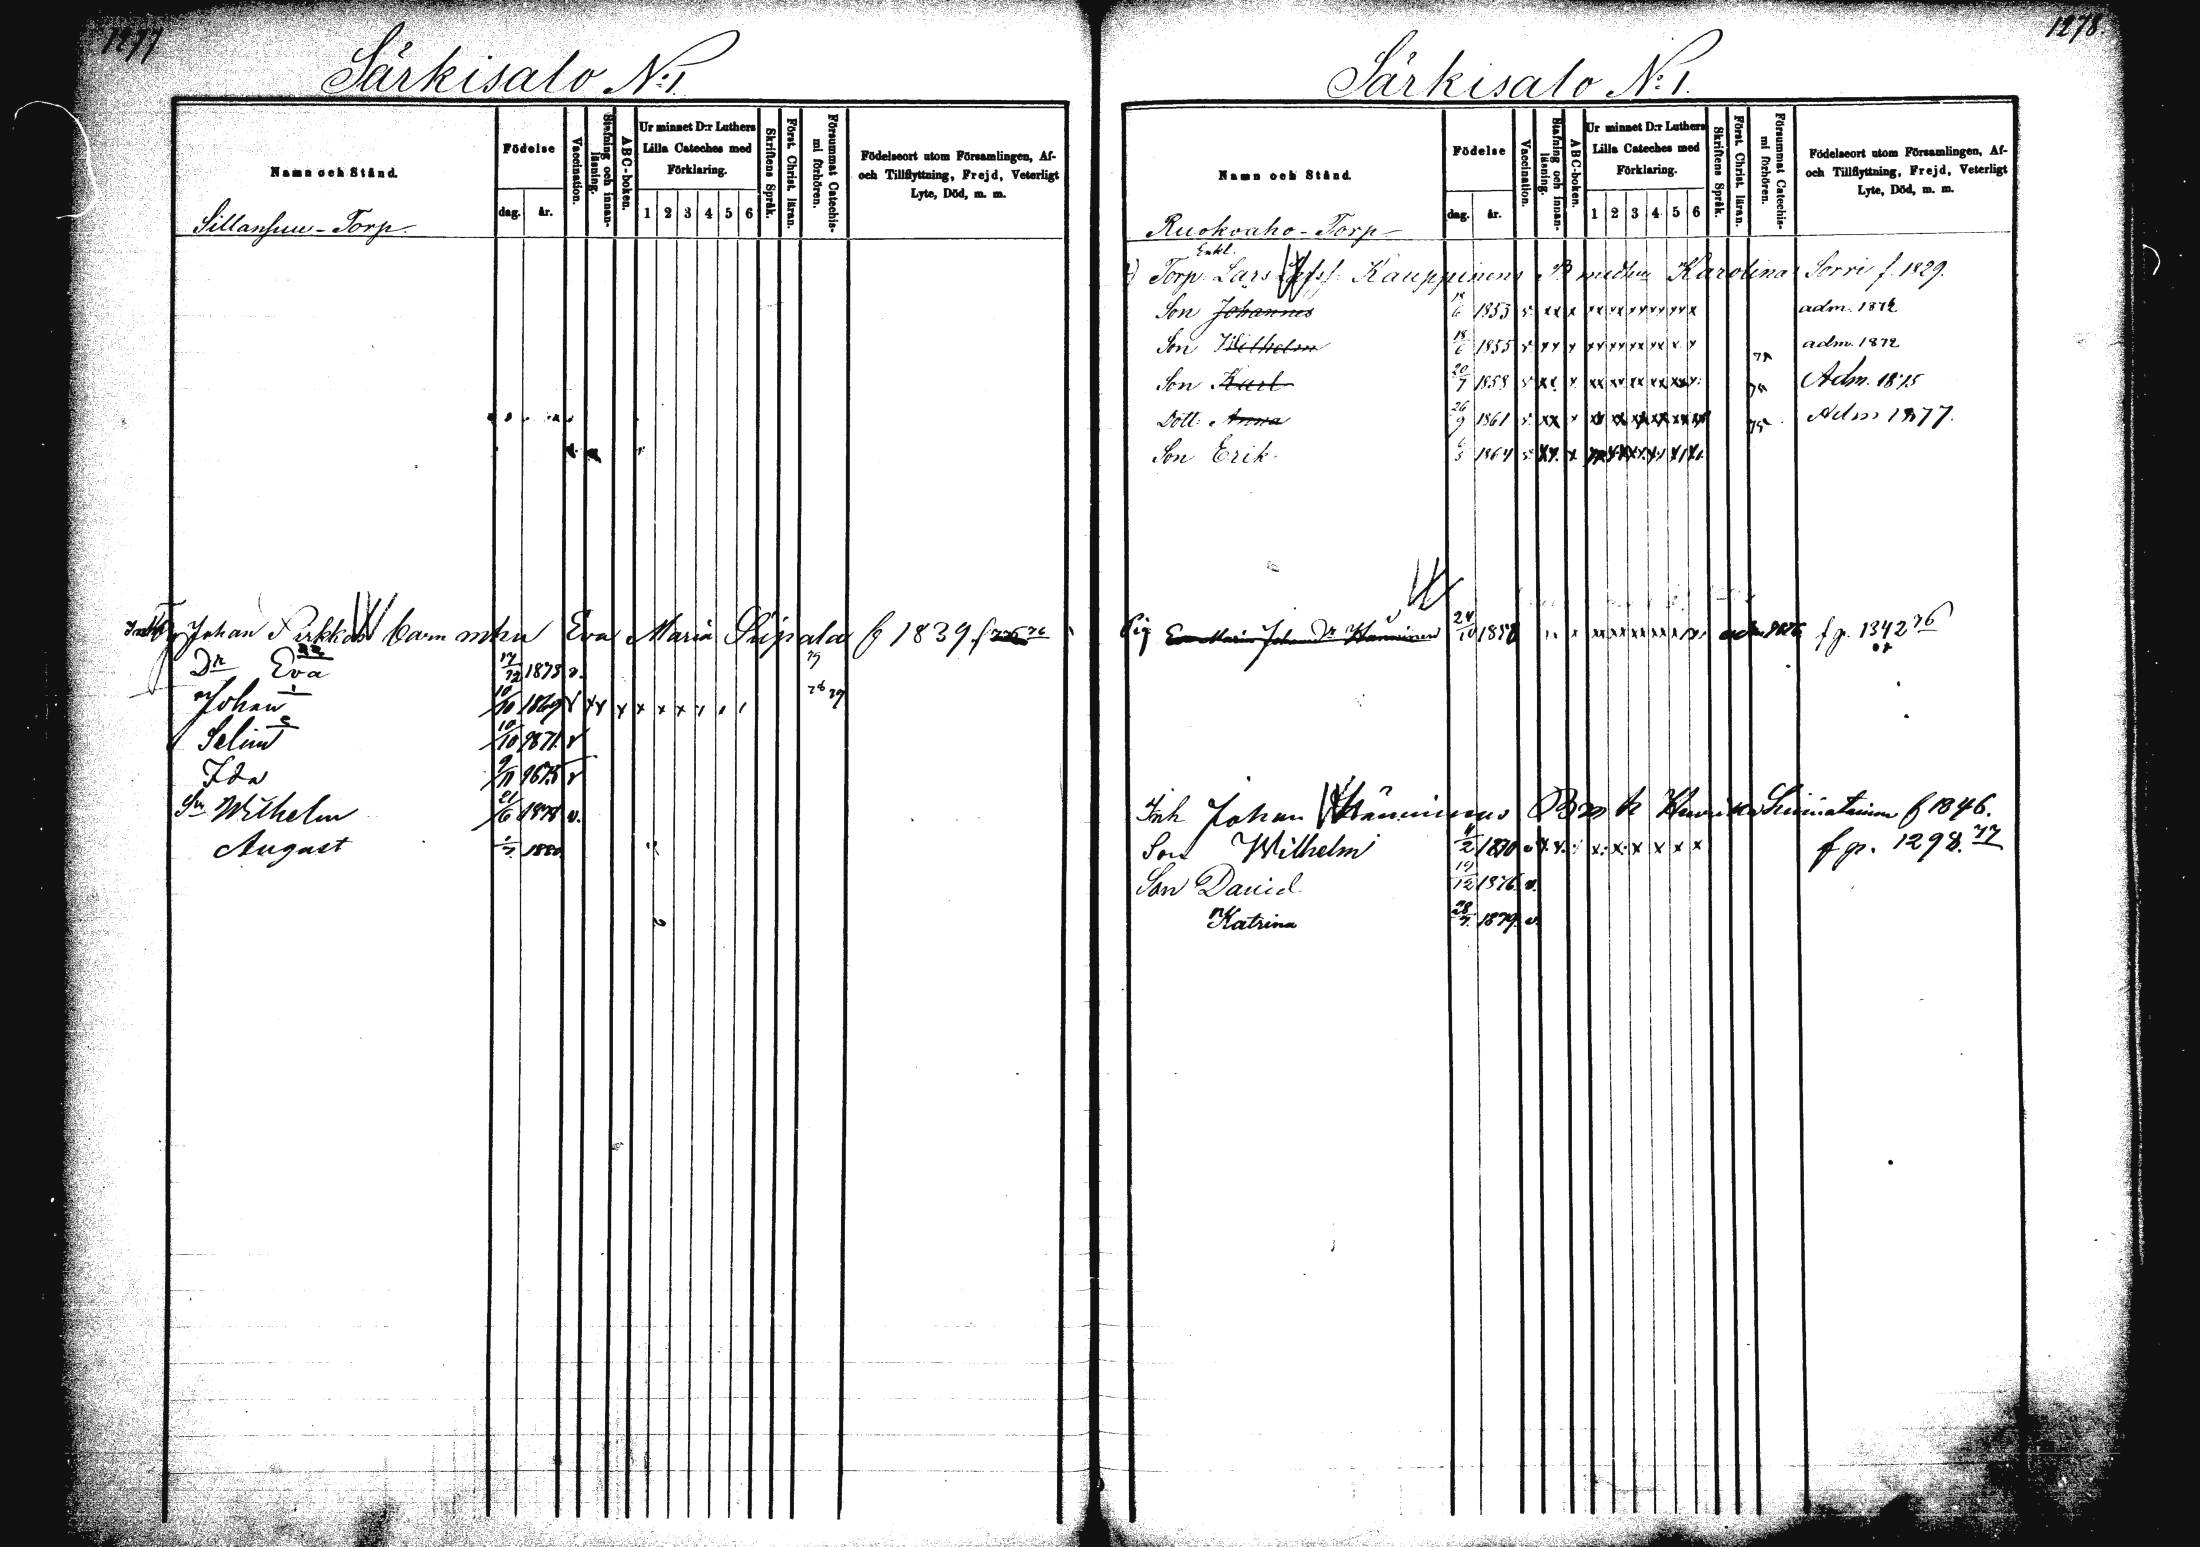 1277
Särkisalo N:1
Namn och Stånd.
Födelse
dag.
år.
Vaccination.
Stafning och innan-läsning.
ABC-boken.
Ur minnet D:r Luthers
Lilla Cateches med
Förklaring.
1 2 3 4 5 6
Skriftens Språk.
Först. Christ. läran.
Försummat Catechis-mi förhören.
Födelseort utom Församlingen, Af-
och Tillflyttning, Frejd, Veterligt
Lyte, Död, m. m.
Torp
Johan Barn mhu Eva Maria f 1839
Dr Eva 17/12 1873 v.
Johan 10/10 1869
10/10 1871 v
Ida 9/11 1875 v
Sn Wilhelm 21/6 1878 v.
August 1880
1278
Särkisalo N:1.
Namn och Stånd.
Födelse
dag.
år.
Vaccination.
Stafning och innan-läsning.
ABC-boken.
Ur minnet D:r Luthers
Lilla Cateches med
Förklaring.
1 2 3 4 5 6
Skriftens Språk.
Först. Christ. läran.
Försummat Catechis-mi förhören.
Födelseort utom Församlingen, Af-
och Tillflyttning, Frejd, Veterligt
Lyte, Död, m. m.
Ruokoaho-Torp
Enkl.
Torp. Lars Kauppinens B medhu Karolina Sorri f. 1829.
Son Johannes 1853 adm. 1872
Son Wilhelm 18/6 1855 adm. 1872
Son Karl 20/7 1858 Adm. 1875
Dott. Anna 26/9 1861 Adm 1877.
Son Erik 1864
Pig Eva Maria Johans Dr Hänninen 24/10 1858 adm 1876 f p. 1342 76
Inh Johan Hänninens B m h Henrika f 1846.
Son Wilhelm 4/2 1870 f p. 1298. 77
Son David 19/12 1876 v.
Katrina 28/7 1879 v.